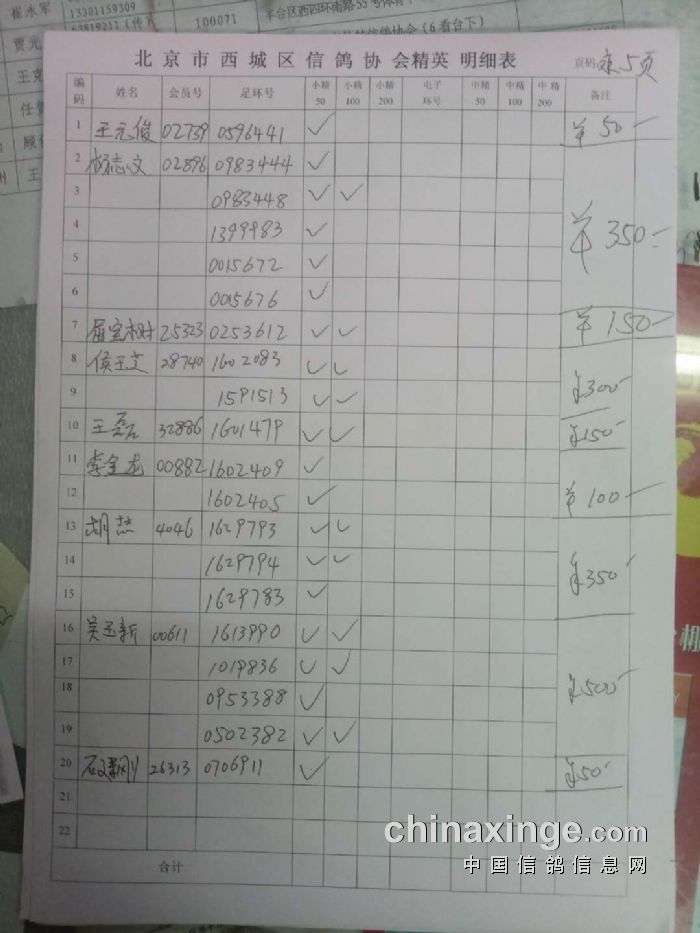 崔永军 13301159309
63819211 (传) 100071 丰台区西四环南路55号
贾光
信鸽协会 (6看台下)
王克
任
顾
王
北京市西城区信鸽协会精英 明细表 页码 第5页
编码 姓名 会员号 足环号 小精50 小精100 小精200 电子环号 中精50 中精100 中精200 备注
1 王元俊 02739 0596441 ✓ ¥50-
2 杨志文 02896 0983444 ✓
3 0983448 ✓ ✓
4 1399983 ✓ ¥350-
5 0015672 ✓
6 0015676 ✓
7 屈宝树 25323 0253612 ✓ ✓ ¥150-
8 侯玉文 28740 1602083 ✓ ✓
9 1591513 ✓ ✓ ¥300-
10 王磊 32886 1601479 ✓ ✓ ¥150-
11 李金龙 00882 1602409 ✓
12 1602405 ✓ ¥100-
13 胡杰 4046 1629793 ✓ ✓
14 1629794 ✓ ✓ ¥350-
15 1629783 ✓
16 吴玉新 00611 1613990 ✓ ✓
17 1019836 ✓ ✓
18 0953388 ✓ ¥500-
19 0502382 ✓ ✓
20 刚 26313 0706911 ✓ ¥50-
21
22
合计
chinaxinge.com
中国信鸽信息网